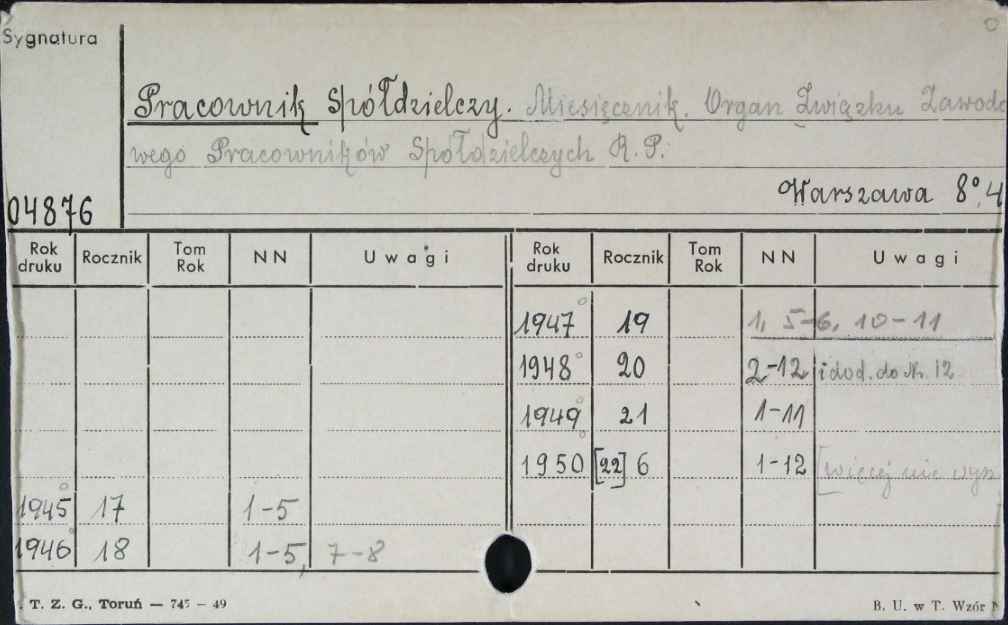 Sygnatura
Pracownik Spółdzielczy. Miesięcznik. Organ Związku Zawod
wego Pracowników Spółdzielczych R. P.
Warszawa 8°.4
04876
Rok druku Rocznik Tom Rok NN Uwagi Rok druku Rocznik Tom Rok NN Uwagi
1947 19 1, 5-6, 10-11
1948 20 2-12 i dod. do Nr. 12
1949 21 1-11
1950 [22] 6 1-12 [więcej nie wysz
1945 17 1-5
1946 18 1-5, 7-8
. T. Z. G., Toruń — 745 — 49 B. U. w T. Wzór